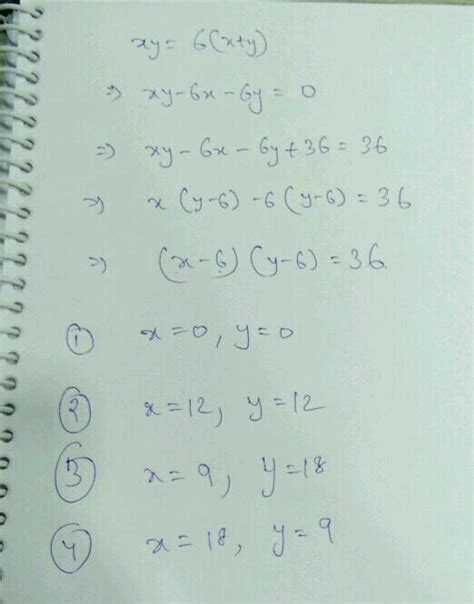 xy = 6(x+y)
⇒ xy-6x-6y = 0
⇒ xy-6x-6y+36 = 36
⇒ x(y-6)-6(y-6) = 36
⇒ (x-6)(y-6) = 36.
① x=0, y=0
② x=12, y=12
③ x=9, y=18
④ x=18, y=9